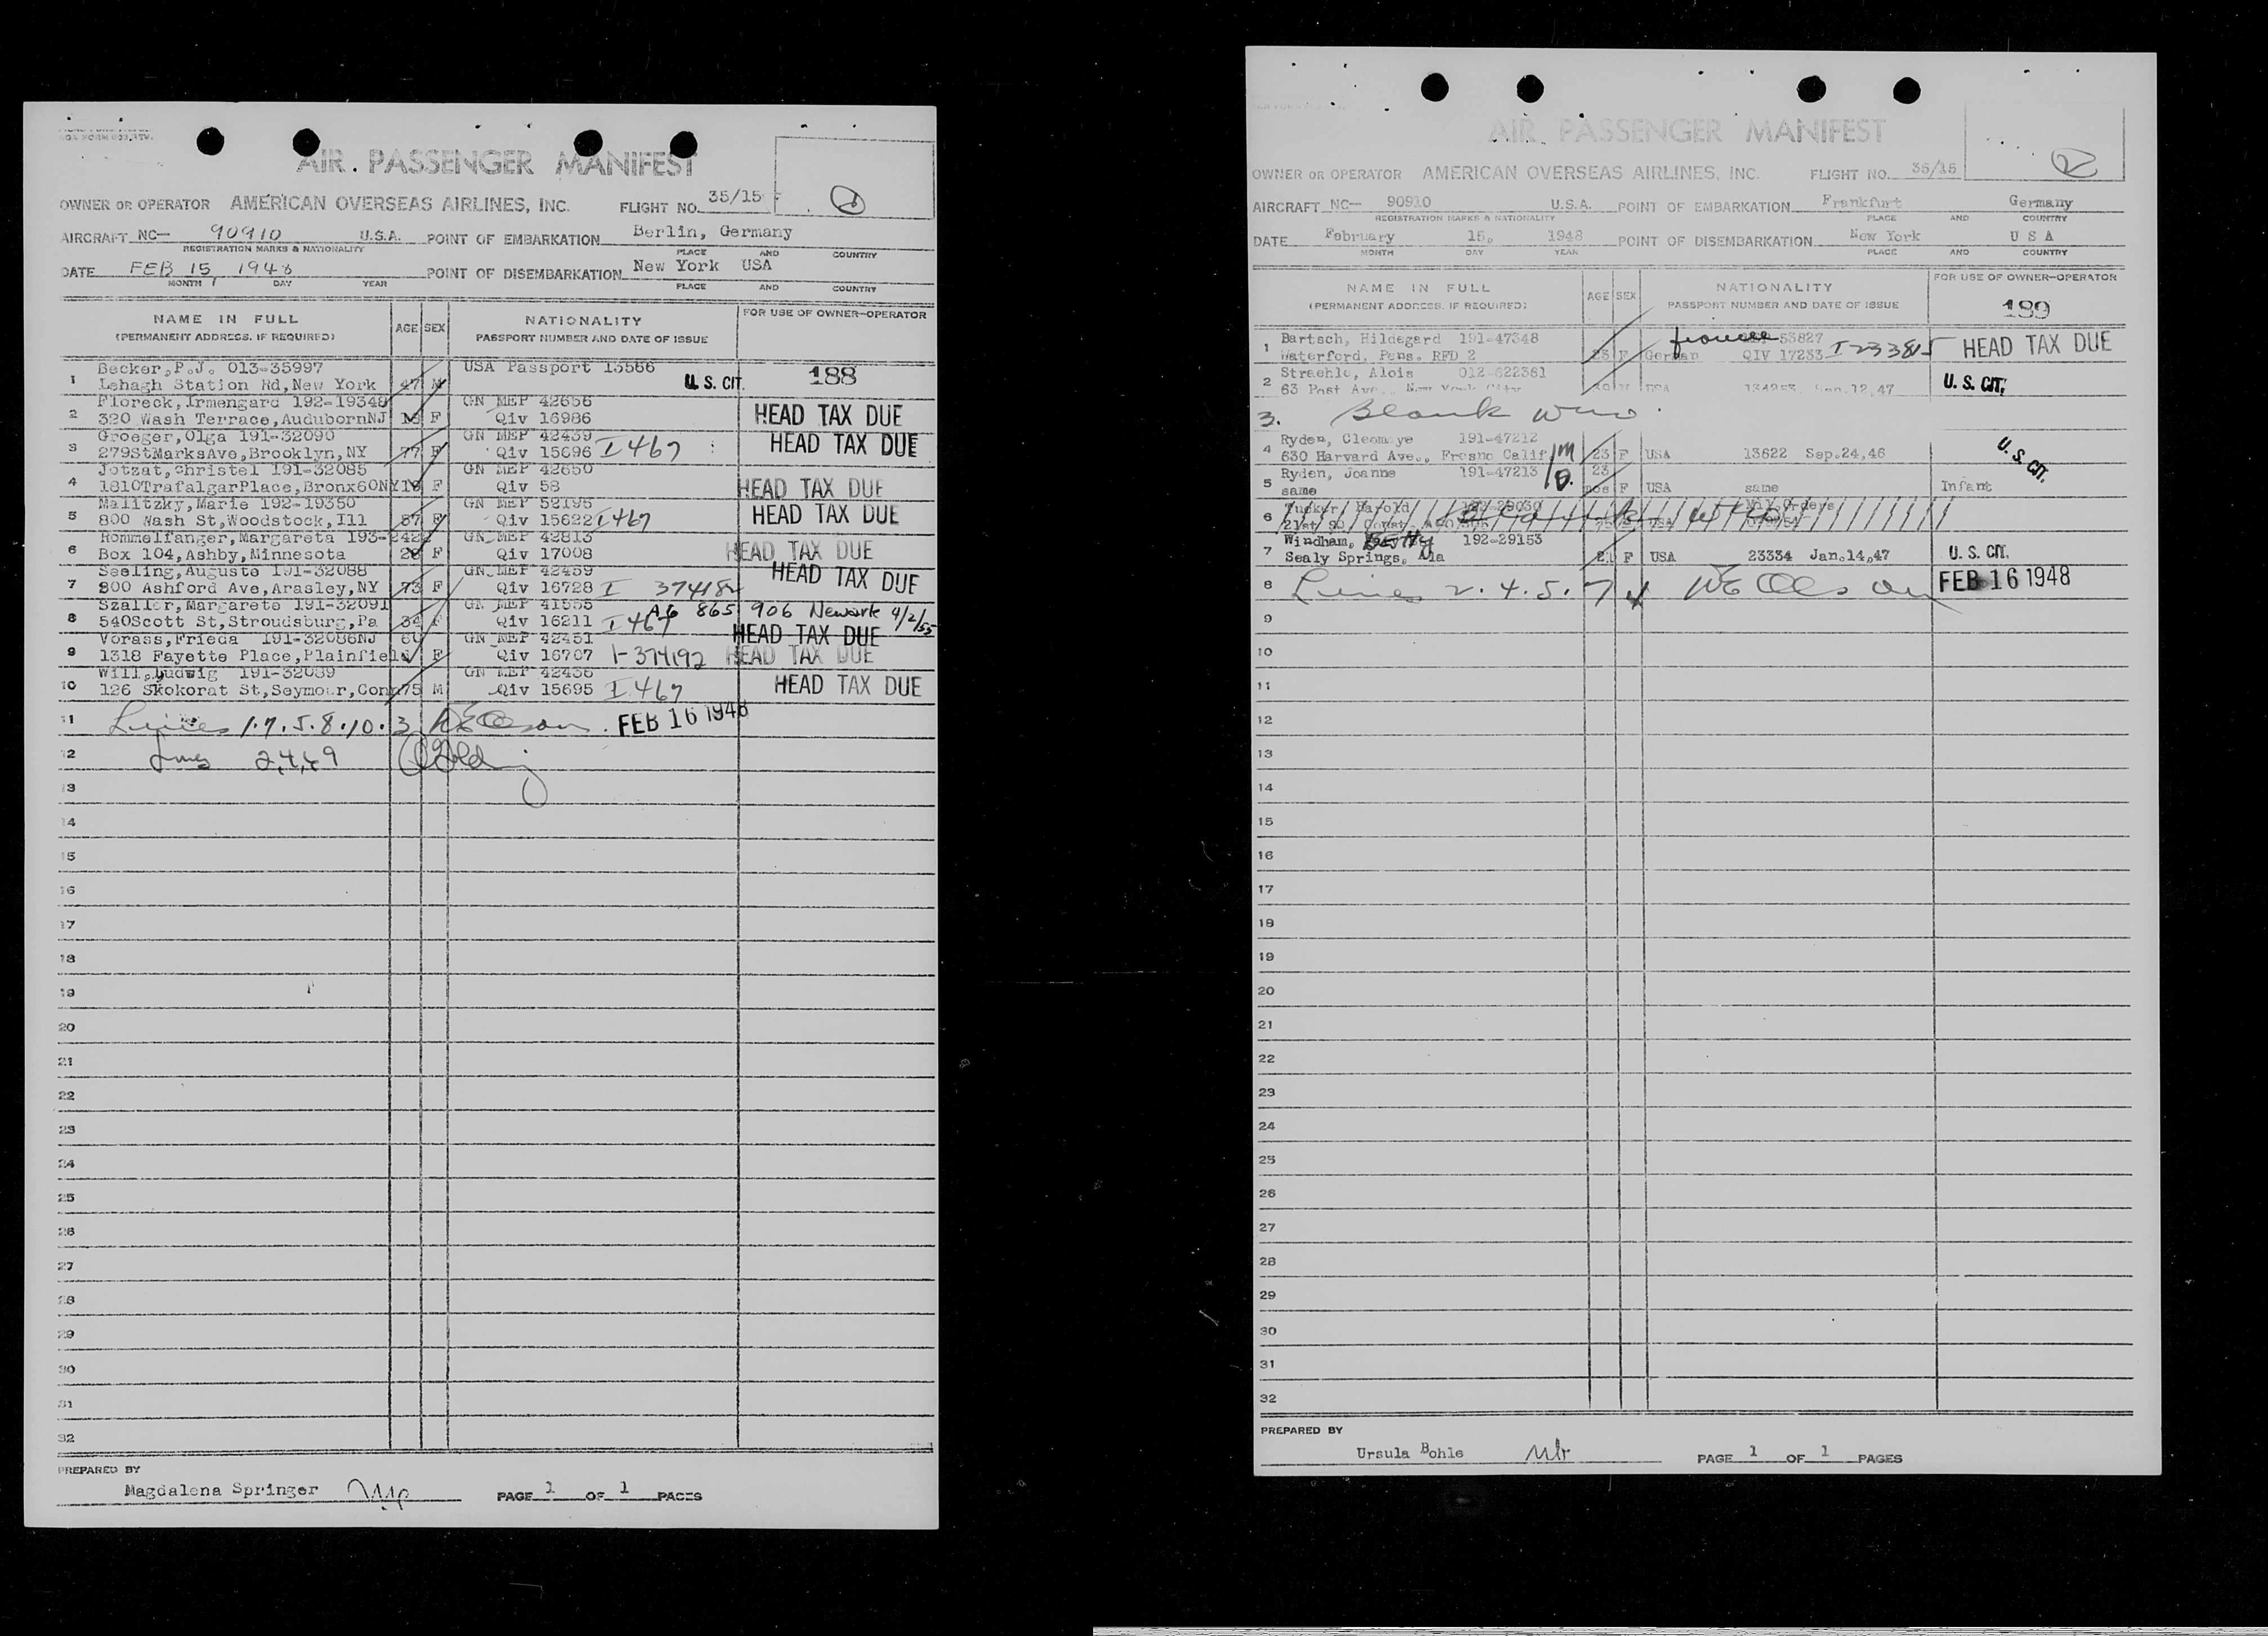 AIR PASSENGER MANIFEST
OWNER OR OPERATOR AMERICAN OVERSEAS AIRLINES, INC. FLIGHT NO. 35/15
AIRCRAFT NC— 90910 U.S.A. POINT OF EMBARKATION Berlin, Germany
REGISTRATION MARKS & NATIONALITY PLACE AND COUNTRY
DATE FEB 15, 1948 POINT OF DISEMBARKATION New York USA
MONTH DAY YEAR PLACE AND COUNTRY
NAME IN FULL AGE SEX NATIONALITY FOR USE OF OWNER-OPERATOR
(PERMANENT ADDRESS, IF REQUIRED) PASSPORT NUMBER AND DATE OF ISSUE
188
Becker,P.J. 013-35997 USA Passport 13566
1 Lehagh Station Rd,New York 47 M U.S. CIT.
Floreck,Irmengard 192-19348 GN MEP 42656
2 320 Wash Terrace,AudubornNJ F Qiv 16986 HEAD TAX DUE
Groeger,Olga 191-32090 GN MEP 42439
3 279StMarksAve,Brooklyn,NY 77 F Qiv 15696 I 467 HEAD TAX DUE
Jotzat,Christel 191-32085 GN MEP 42650
4 1810TrafalgarPlace,Bronx60NY 18 F Qiv 58 HEAD TAX DUE
Malitzky,Marie 192-19350 GN MEP 52195
5 800 Wash St,Woodstock,Ill 67 F Qiv 15622 I 467 HEAD TAX DUE
Rommelfanger,Margareta 193-2422 GN MEP 42813
6 Box 104,Ashby,Minnesota 28 F Qiv 17008 HEAD TAX DUE
Seeling,Auguste 191-32088 GN MEP 42459
7 800 Ashford Ave,Arasley,NY 73 F Qiv 16728 I 37418 HEAD TAX DUE
Szaller,Margarete 191-32091 GN MEP 41555 A6 865 906 Newark 4/2/55
8 540Scott St,Stroudsburg,Pa 34 F Qiv 16211 I 467 HEAD TAX DUE
Vorass,Frieda 191-32086NJ 60 GN MEP 42451
9 1318 Fayette Place,Plainfield F Qiv 16707 I-374192 HEAD TAX DUE
Will,Ludwig 191-32089 GN MEP 42436
10 126 Skokorat St,Seymour,Conn 75 M Qiv 15695 I 467 HEAD TAX DUE
11 Lines 1.7.5.8.10.3 FEB 16 1948
12 Lines 2,4,6,9
13
14
15
16
17
18
19
20
21
22
23
24
25
26
27
28
29
30
31
32
PREPARED BY
Magdalena Springer PAGE 1 OF 1 PAGES
AIR PASSENGER MANIFEST
OWNER OR OPERATOR AMERICAN OVERSEAS AIRLINES, INC. FLIGHT NO. 35/15
AIRCRAFT NC— 90910 U.S.A. POINT OF EMBARKATION Frankfurt Germany
REGISTRATION MARKS & NATIONALITY PLACE AND COUNTRY
DATE February 15, 1948 POINT OF DISEMBARKATION New York U S A
MONTH DAY YEAR PLACE AND COUNTRY
NAME IN FULL AGE SEX NATIONALITY FOR USE OF OWNER-OPERATOR
(PERMANENT ADDRESS, IF REQUIRED) PASSPORT NUMBER AND DATE OF ISSUE
189
Bartsch, Hildegard 191-47348 fiancee 53827
1 Waterford, Pens. RFD 2 23 F German QIV 17233 I-233815 HEAD TAX DUE
Straehle, Alois 012-622361
2 63 Post Ave., New York City M USA Jan.12,47 U.S. CIT.
3. Blank
Ryden, Cleomaye 191-47212
4 630 Harvard Ave., Fresno Calif 23 F USA 13622 Sep.24,46 U.S. CIT.
Ryden, Joanne 191-47213 23
5 same mos F USA same Infant
Tucker, Harold Orders
6
Windham, Betty 192-29153
7 Sealy Springs, Ala 21 F USA 23334 Jan.14,47 U.S. CIT.
8 Lines 2.4.5.7 FEB 16 1948
9
10
11
12
13
14
15
16
17
18
19
20
21
22
23
24
25
26
27
28
29
30
31
32
PREPARED BY
Ursula Bohle PAGE 1 OF 1 PAGES